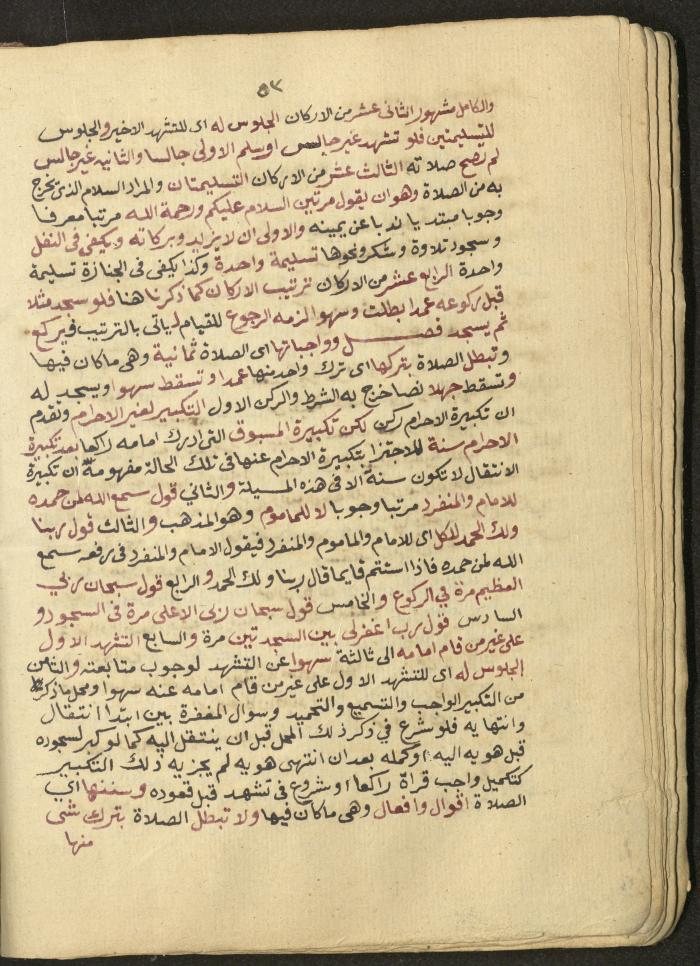 ٥٢
والكامل مشهور الثانى عشر من الاركان الجلوس له اى للتشهد الاخير والجلوس
للتسليمتين فلو تشهد غير جالس او سلم الاولى جالسا والثانية غير جالس
لم تصح صلاته الثالث عشر من الاركان التسليمتان والمراد السلام الذى يخرج
به من الصلاة وهو ان يقول مرتين السلام عليكم ورحمة الله مرتبا معرفا
وجوبا مبتديا ندبا عن يمينه والاولى ان لا يزيد وبركاته ويكفى فى النفل
وسجود تلاوة وشكر ونحوها تسليمة واحدة وكذا يكفى فى الجنازة تسليمة
واحدة الرابع عشر من الاركان ترتيب الاركان كما ذكرنا هنا فلو سجد مثلا
قبل ركوعه عمدا بطلت وسهوا لزمه الرجوع للقيام لياتى بالترتيب فيركع
ثم يسجد فصل وواجباتها اى الصلاة ثمانية وهى ما كان فيها
وتبطل الصلاة بتركها اى ترك واحد منها عمدا وتسقط سهوا ويسجد له
وتسقط جهلا نصا خرج به الشرط والركن الاول التكبير لغير الاحرام وتقدم
ان تكبيرة الاحرام ركن لكن تكبيرة المسبوق التى ادرك امامه راكعا بعد تكبيرة
الاحرام سنة للاجتزا بتكبيرة الاحرام عنها فى تلك الحالة مفهومه ان تكبيرة
الانتقال لا تكون سنة الا فى هذه المسيلة والثانى قول سمع الله لمن حمده
للامام والمنفرد مرتبا وجوبا لا للماموم وهو المذهب والثالث قول ربنا
ولك الحمد للكل اى للامام والماموم والمنفرد فيقول الامام والمنفرد فى رفعه سمع
الله لمن حمده فاذا استتم قايما قال ربنا ولك الحمد والرابع قول سبحان ربي
العظيم مرة في الركوع والخامس قول سبحان ربى الاعلى مرة فى السجود و
السادس قول رب اغفر لى بين السجدتين مرة والسابع التشهد الاول
على غير من قام امامه الى ثالثة سهوا عن التشهد لوجوب متابعته والثامن
الجلوس له اى للتشهد الاول على غير من قام امامه عنه سهوا ومحل ما ذكر
من التكبير الواجب والتسميع والتحميد وسوال المغفرة بين ابتدا انتقال
وانتهايه فلو شرع في ذكر ذلك المحل قبل ان ينتقل اليه كما لو كبر لسجوده
قبل هويه اليه او كمله بعد ان انتهى هويه لم يجزيه ذلك التكبير
كتكميل واجب قراة راكعا او شروع فى تشهد قبل قعوده وسننها اي
الصلاة اقوال وافعال وهى ما كان فيها ولا تبطل الصلاة بترك شى
منها